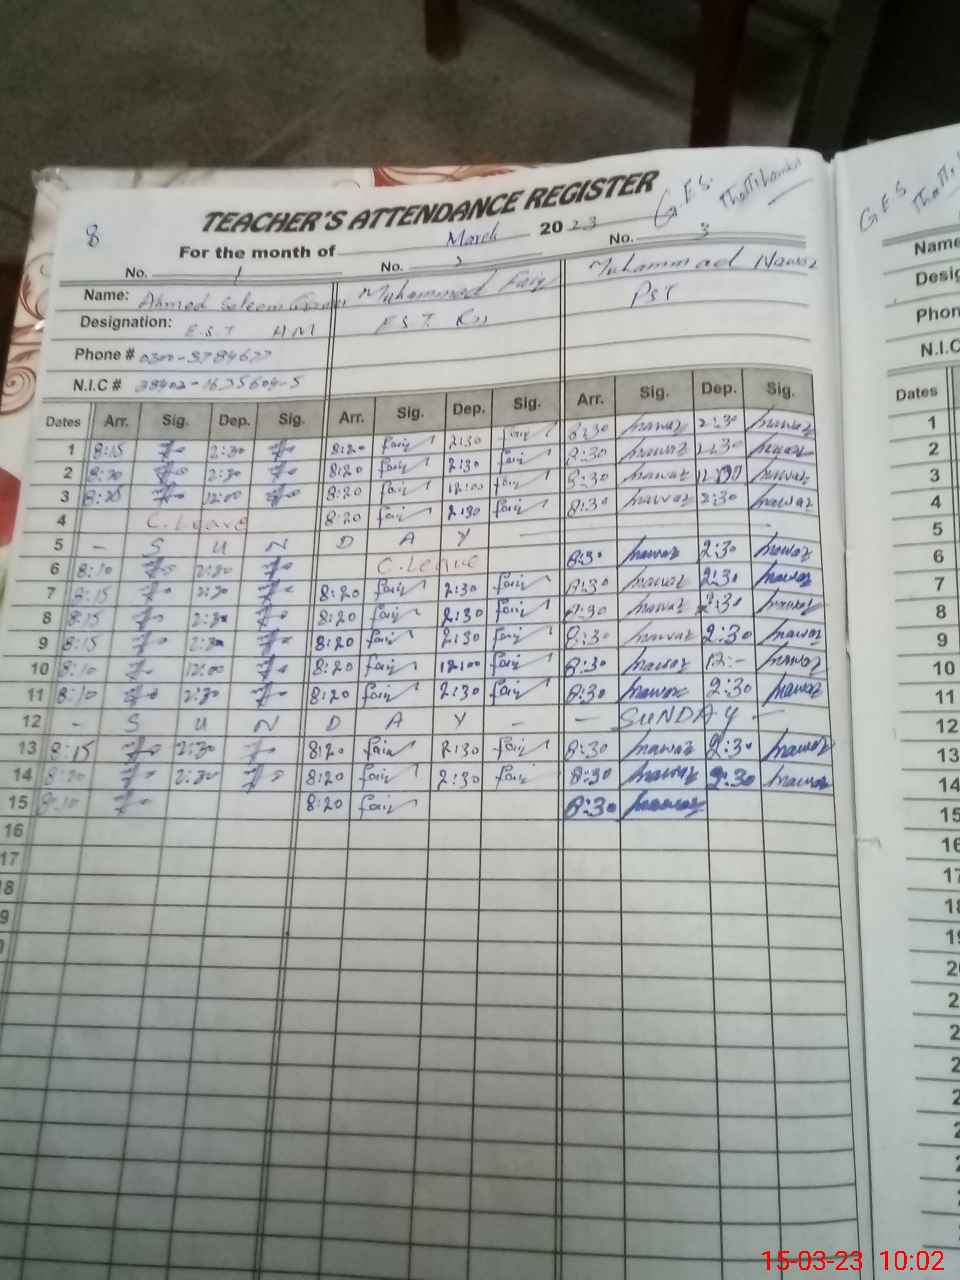 8
TEACHER'S ATTENDANCE REGISTER
G.E.S.
For the month of March 2023
No. 1 No. 2 No. 3
Name: Ahmed Saleem Muhammad Faiz Muhammad Nawaz
Designation: E.S.T HM E.S.T PST
Phone #
N.I.C #
Dates Arr. Sig. Dep. Sig. Arr. Sig. Dep. Sig. Arr. Sig. Dep. Sig.
1 8:15 2:30 8:20 faiz 2:30 faiz 8:30 nawaz 2:30 nawaz
2 8:20 2:30 8:20 faiz 2:30 faiz 8:30 nawaz nawaz
3 8:20 12:00 8:20 faiz 12:00 faiz 8:30 nawaz nawaz
4 C. Leave 8:20 faiz 2:30 faiz 8:30 nawaz 2:30 nawaz
5 - S U N D A Y
6 8:10 2:30 C. Leave 8:30 nawaz 2:30 nawaz
7 8:15 2:30 8:20 faiz 2:30 faiz 8:30 nawaz 2:30 nawaz
8 8:15 2:30 8:20 faiz 2:30 faiz 8:30 nawaz 2:30 nawaz
9 8:15 2:30 8:20 faiz 2:30 faiz 8:30 nawaz 2:30 nawaz
10 8:10 12:00 8:20 faiz 12:00 faiz 8:30 nawaz 12:- nawaz
11 8:10 2:30 8:20 faiz 2:30 faiz 8:30 nawaz 2:30 nawaz
12 - S U N D A Y - - SUNDAY -
13 8:15 2:30 8:20 faiz 2:30 faiz 8:30 nawaz 2:30 nawaz
14 8:20 2:30 8:20 faiz 2:30 faiz 8:30 nawaz 2:30 nawaz
15 8:10 8:20 faiz 8:30 nawaz
16
17
18
9
G.E.S
Name
Desig
Phon
N.I.C
Dates
1
2
3
4
5
6
7
8
9
10
11
12
13
14
15
16
17
18
19
20
15-03-23 10:02